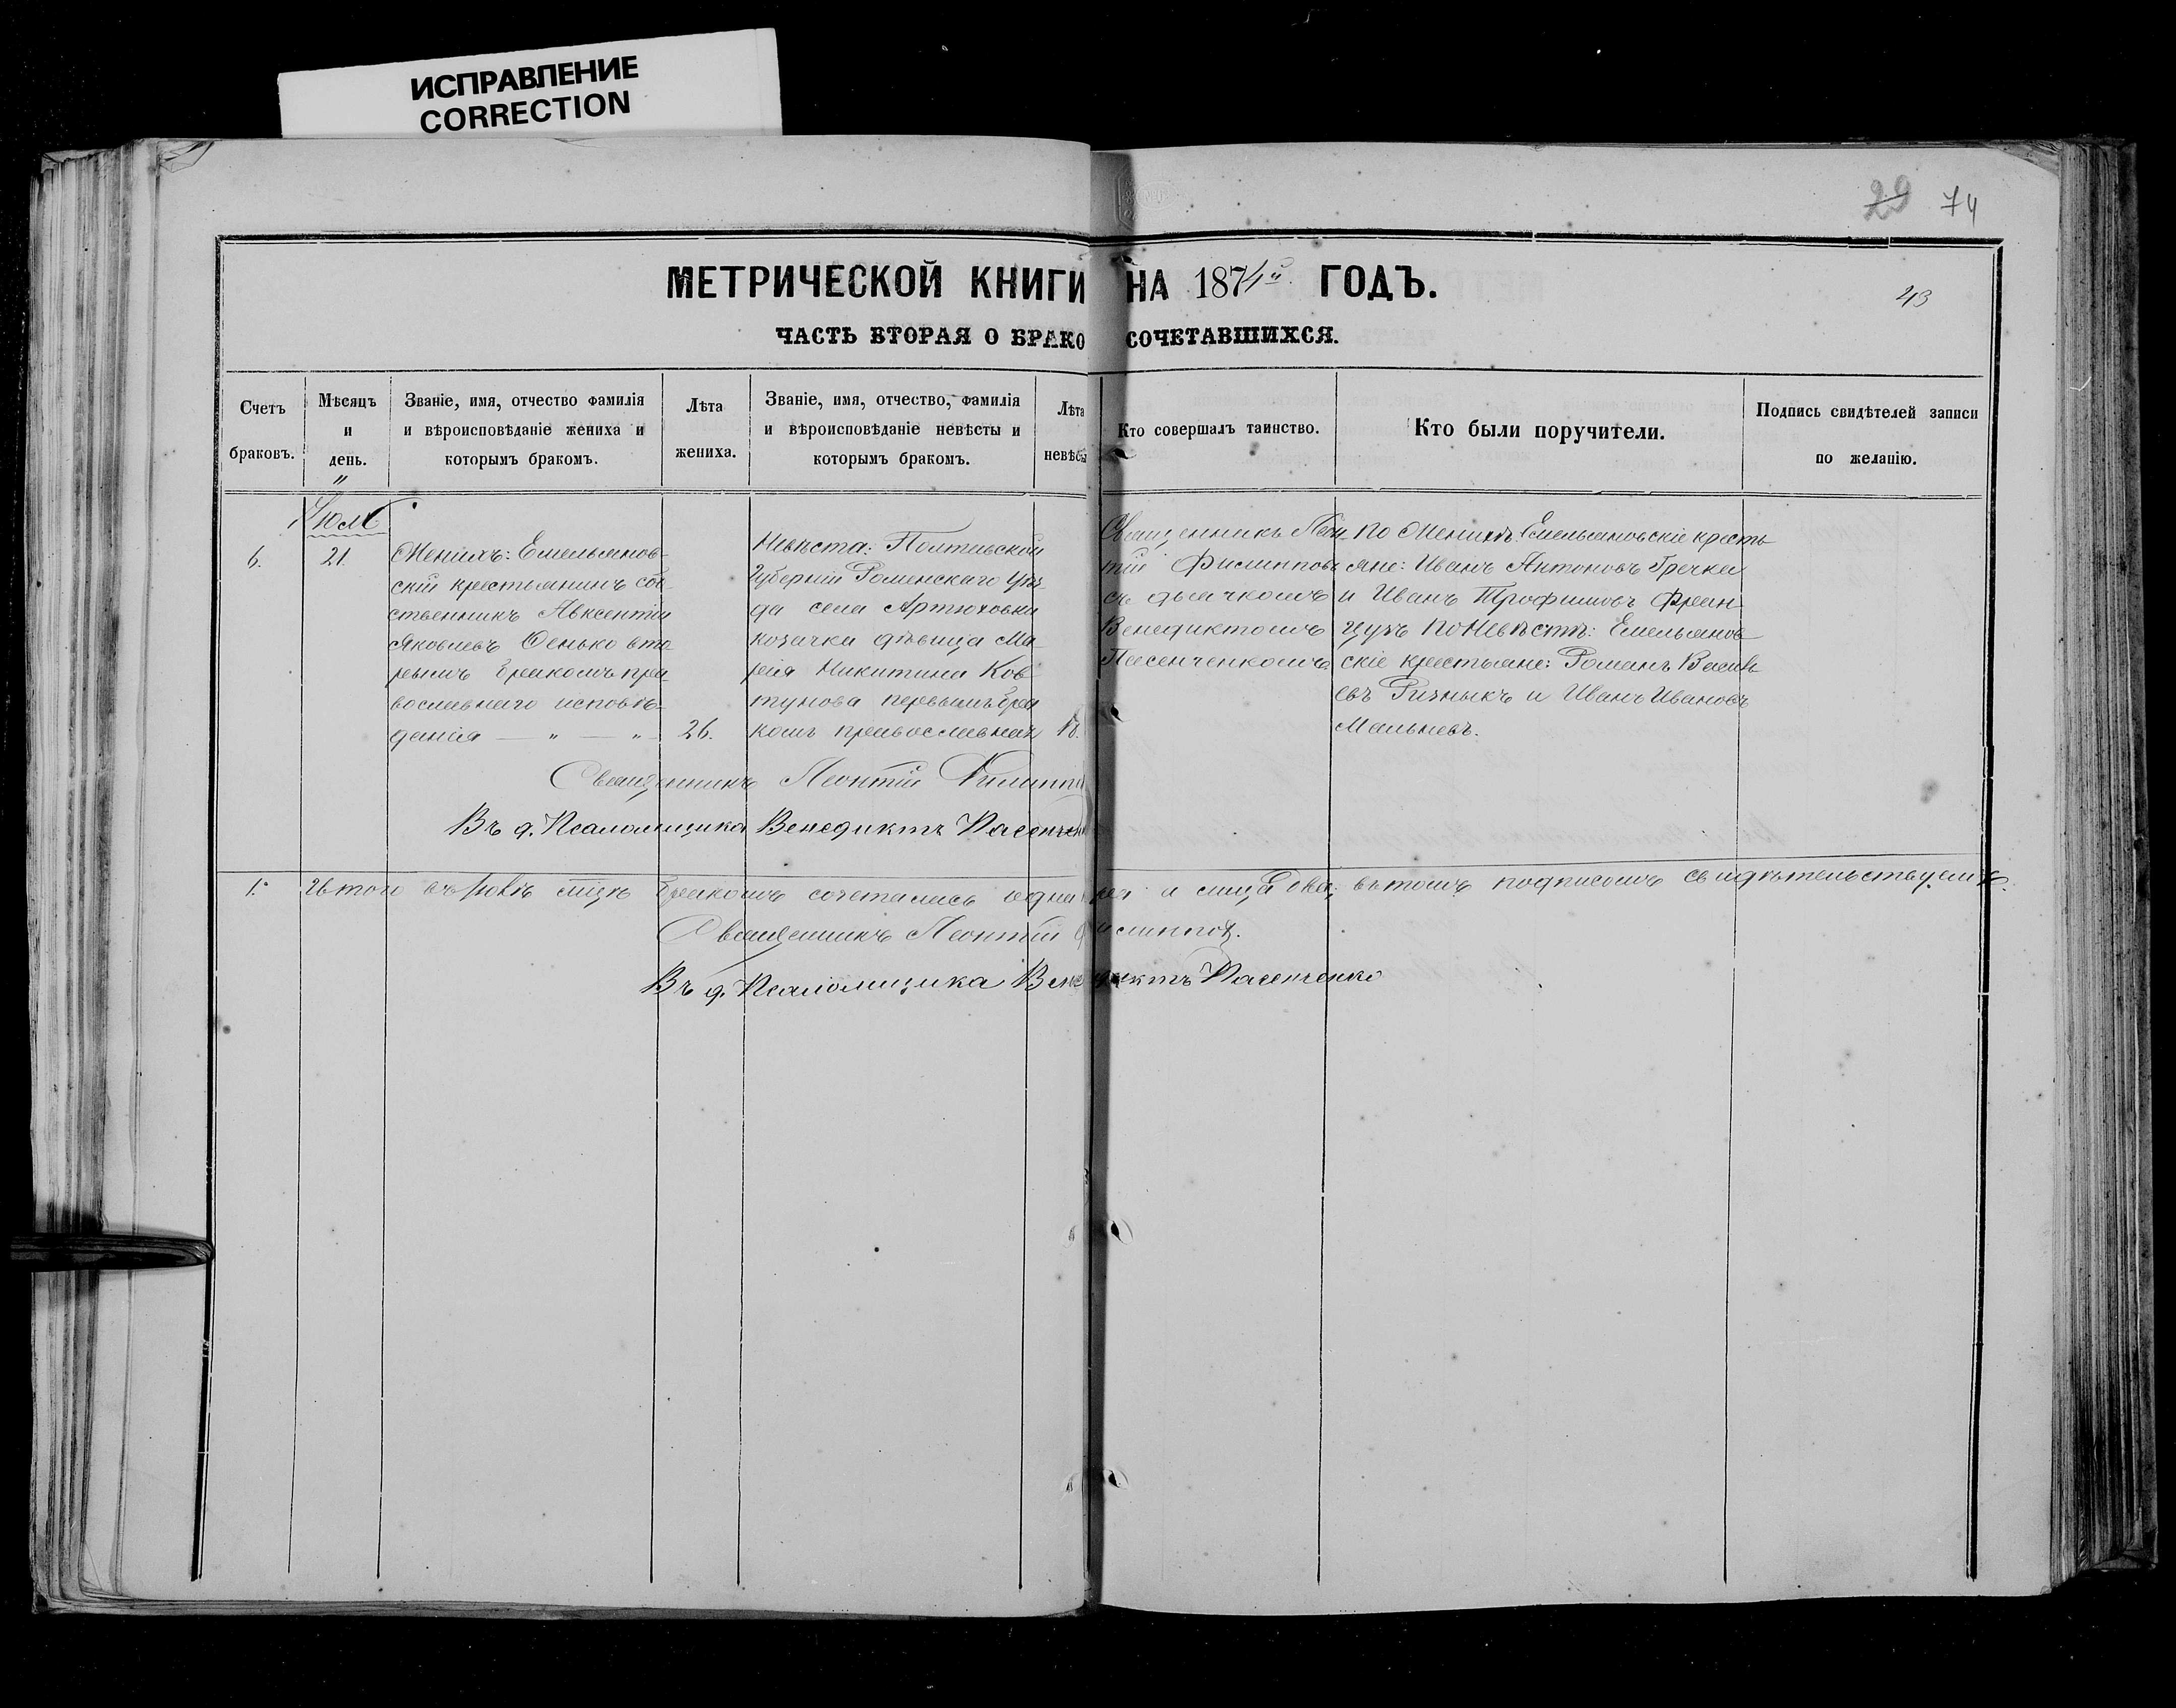 ИСПРАВЛЕНИЕ
CORRECTION
29 74
МЕТРИЧЕСКОЙ КНИГИ НА 1874й ГОДЪ.
43
ЧАСТЬ ВТОРАЯ О БРАКОСОЧЕТАВШИХСЯ.
Счетъ браковъ.
Мѣсяцъ и день.
Званіе, имя, отчество фамилія и вѣроисповѣданіе жениха и которымъ бракомъ.
Лѣта жениха.
Званіе, имя, отчество, фамилія и вѣроисповѣданіе невѣсты и которымъ бракомъ.
Лѣта невѣсты
Кто совершалъ таинство.
Кто были поручители.
Подпись свидѣтелей записи по желанію.
Іюль
6.
21.
Женихъ: Емельянов-
скій крестьянинъ соб-
ственникъ Авксентій
Яковлевъ Сенько вто-
рымъ бракомъ пра-
вославнаго исповѣ-
данія — „ — „ —
26.
Невѣста: Полтавской
Губерніи Роменскаго Уѣз-
да села Артюховки
козачка дѣвица Ма-
рія Никитина Ков-
тунова первымъ бра-
комъ православная
18.
Священникъ Леон-
тій Филипповъ
съ дьячкомъ
Венедиктомъ
Пасенченкомъ
По Женихѣ: Емельяновскіе кресть-
яне: Иванъ Антоновъ Гречка
и Иванъ Трофимовъ Фран-
цузъ по Невѣстѣ: Емельянов-
скіе крестьяне: Романъ Василь-
евъ Ризныкъ и Иванъ Ивановъ
Мальневъ.
Священникъ Леонтій Филиппо
Въ д. Псаломщика Венедиктъ Пасенчен
1. Итого въ Іюлѣ м-цѣ бракомъ сочетались одна пара а лица два; въ томъ подписомъ свидѣтельствуемъ.
Священникъ Леонтій Филипповъ.
Въ д. Псаломщика Венедиктъ Пасенченко